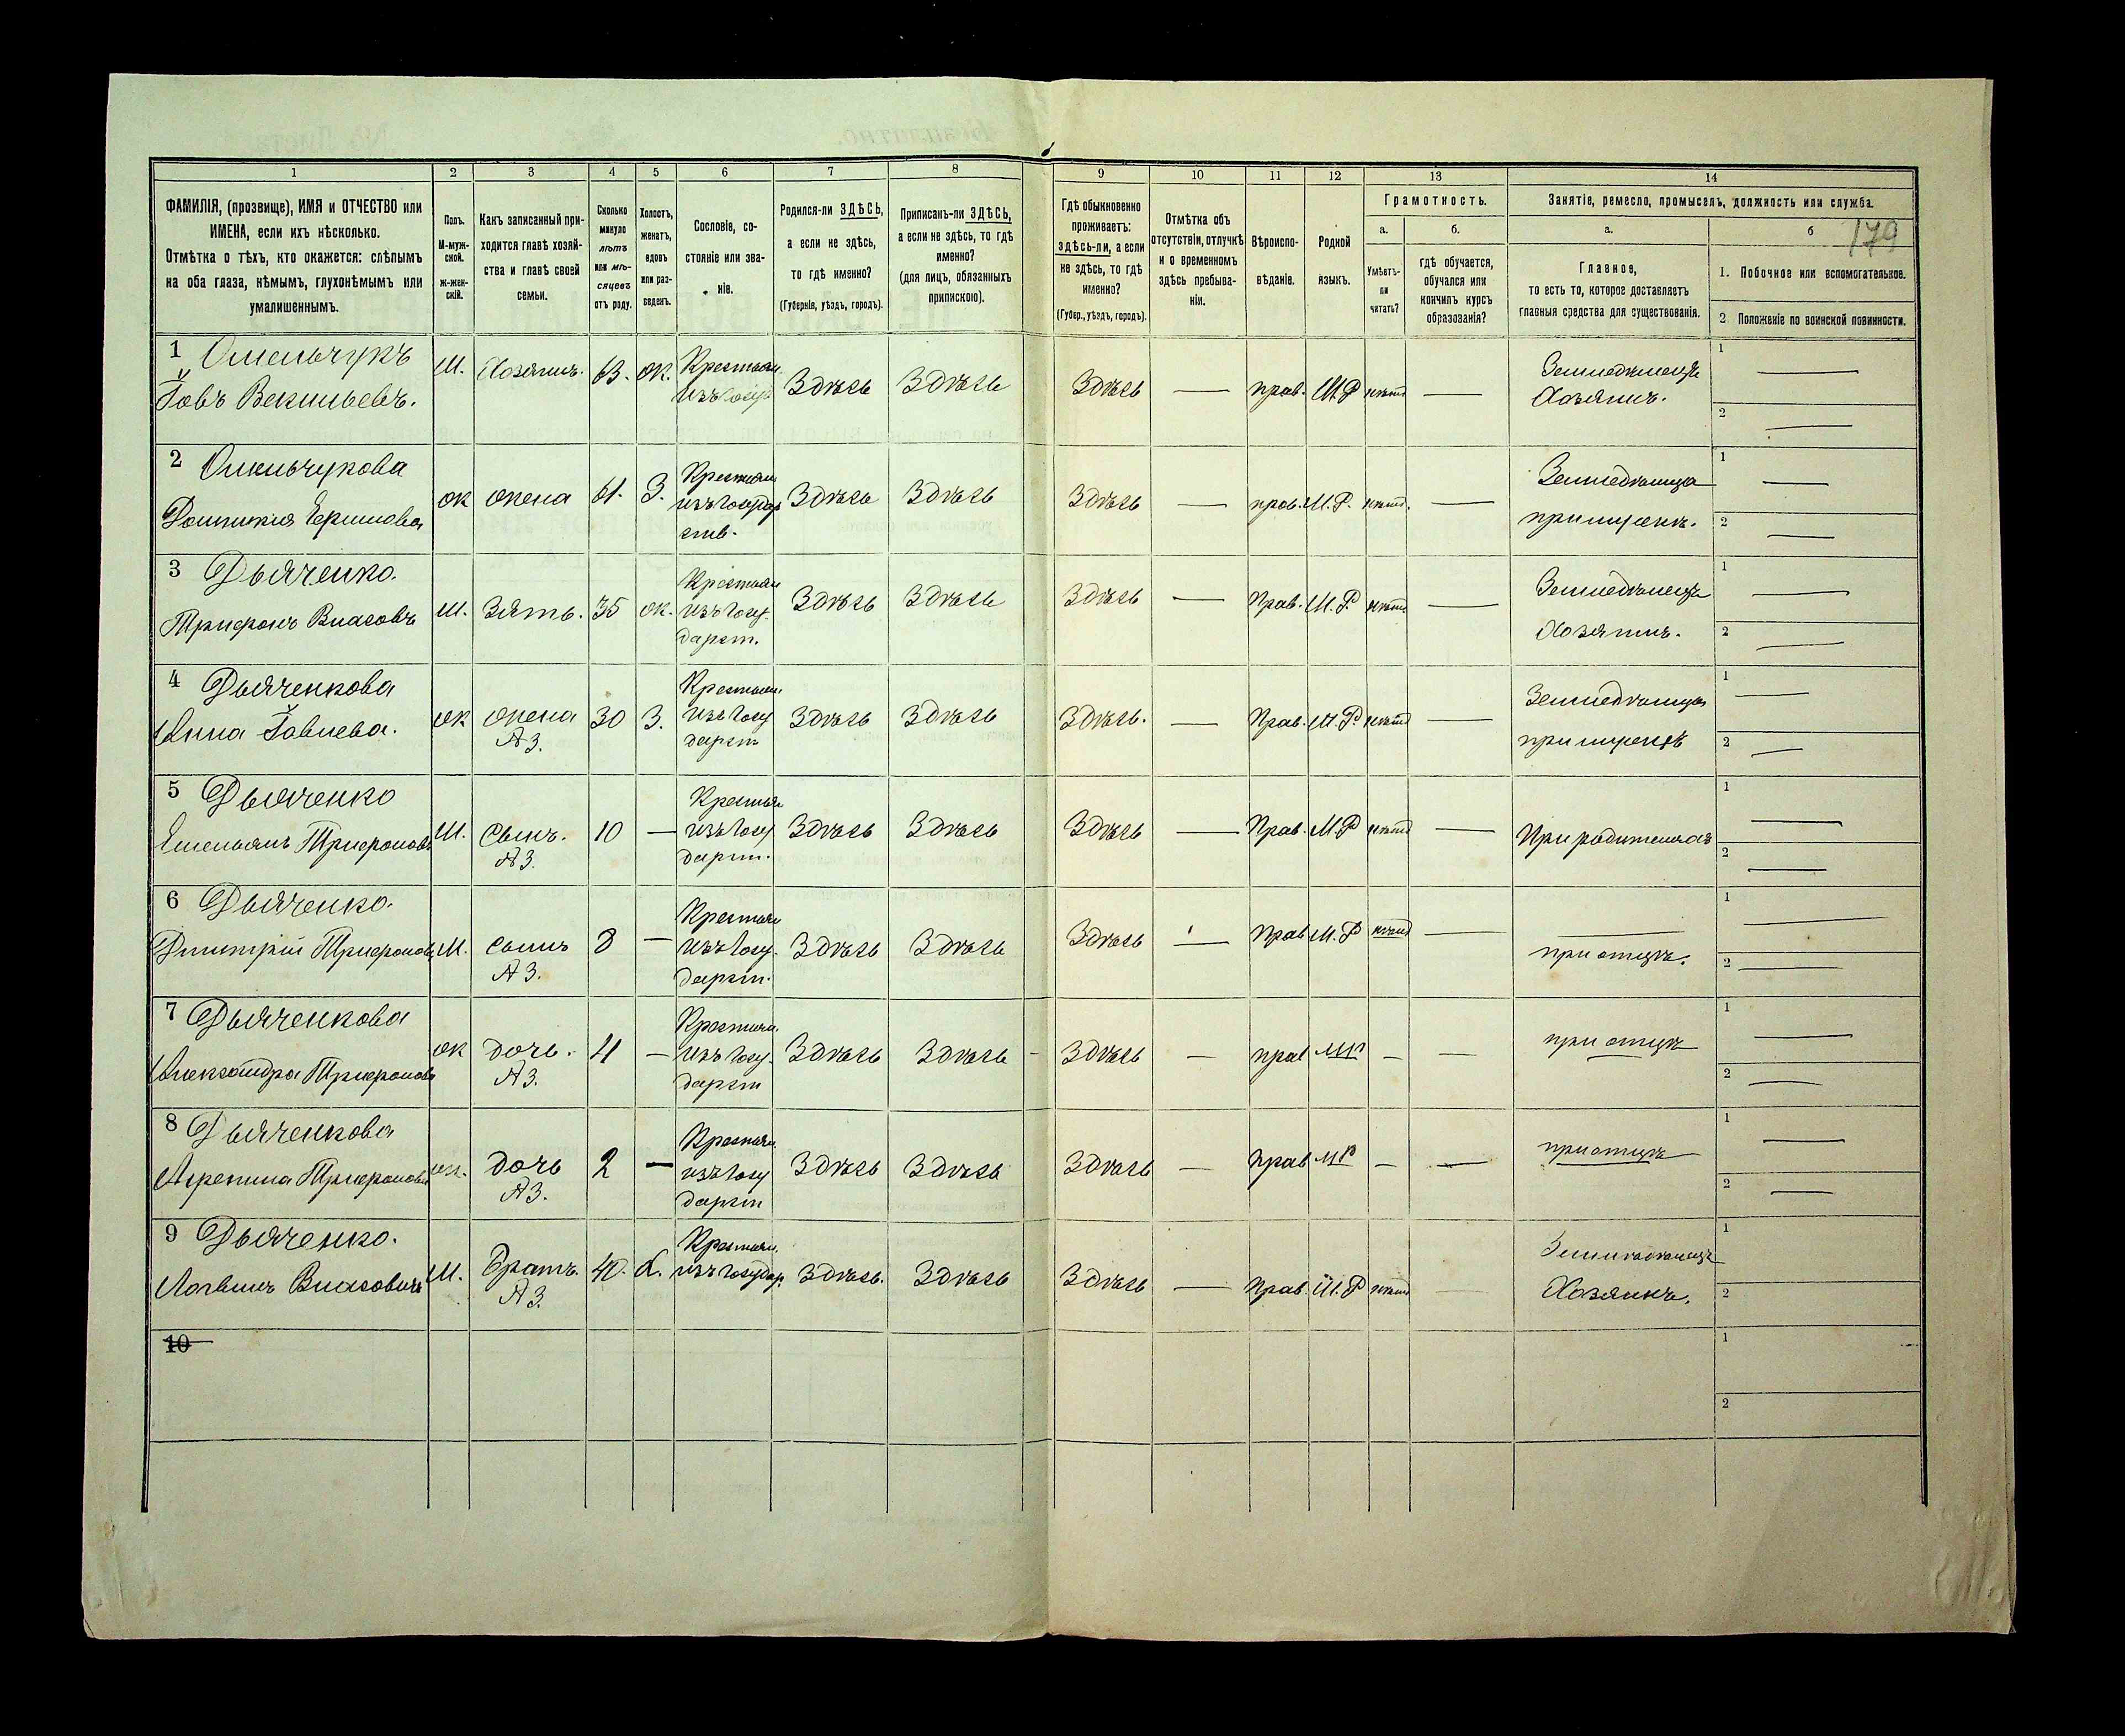 1 2 3 4 5 6 7 8 9 10 11 12 13 14
ФАМИЛІЯ, (прозвище), ИМЯ и ОТЧЕСТВО или
ИМЕНА, если ихъ нѣсколько.
Отмѣтка о тѣхъ, кто окажется: слѣпымъ
на оба глаза, нѣмымъ, глухонѣмымъ или
умалишеннымъ.
Полъ.
М-муж-
ской.
ж-жен-
скій.
Какъ записанный при-
ходится главѣ хозяй-
ства и главѣ своей
семьи.
Сколько
минуло
лѣтъ
или мѣ-
сяцевъ
отъ роду.
Холостъ,
женатъ,
вдовъ
или раз-
веденъ.
Сословіе, со-
стояніе или зва-
ніе.
Родился-ли ЗДѢСЬ,
а если не здѣсь,
то гдѣ именно?
(Губернія, уѣздъ, городъ).
Приписанъ-ли ЗДѢСЬ,
а если не здѣсь, то гдѣ
именно?
(для лицъ, обязанныхъ
припискою).
Гдѣ обыкновенно
проживаетъ:
здѣсь-ли, а если
не здѣсь, то гдѣ
именно?
(Губер., уѣздъ, городъ).
Отмѣтка объ
отсутствіи, отлучкѣ
и о временномъ
здѣсь пребыва-
ніи.
Вѣроиспо-
вѣданіе.
Родной
языкъ.
Грамотность.
а.
Умѣетъ-
ли
читать?
б.
гдѣ обучается,
обучался или
кончилъ курсъ
образованія?
Занятіе, ремесло, промыселъ, должность или служба.
а.
Главное,
то есть то, которое доставляетъ
главныя средства для существованія.
б
179
1. Побочное или вспомогательное.
2. Положеніе по воинской повинности.
1 Омельчукъ
Іовъ М. Хозяинъ. 63. ж. Крестьян. изъ госуд Здѣсь Здѣсь Здѣсь — прав. М.Р нѣтъ — Земледѣлецъ Хозяинъ. 1 — 2 —
2 Омельчукова
ж жена 61. З. Крестьян изъ государ ств. Здѣсь Здѣсь Здѣсь — прав. М.Р. нѣтъ. — Земледѣлица при мужѣ. 1 — 2 —
3 Дьяченко.
Трифонъ Власовъ М. Зять. 35 ж. Крестьян изъ госу. дарст. Здѣсь Здѣсь Здѣсь — Прав. М.Р. нѣтъ — Земледѣлецъ Хозяинъ. 1 — 2 —
4 Дьяченкова
Анна Іовлева. ж жена А3. 30 З. Крестьян. изъ госу дарст Здѣсь Здѣсь Здѣсь. — Прав. М.Р. нѣтъ — Земледѣлица при мужѣ 1 — 2 —
5 Дьяченко
Емельянъ Трифоновъ М. Сынъ. А3. 10 — Крестьян изъ госу дарст. Здѣсь Здѣсь Здѣсь — Прав. М.Р нѣтъ — При родителяхъ 1 — 2 —
6 Дьяченко.
Дмитрій Трифоновъ М. сынъ А3. 8 — Крестьян изъ госу. дарст. Здѣсь Здѣсь Здѣсь — Прав М.Р нѣтъ — при отцѣ. 1 — 2 —
7 Дьяченкова
Александра Трифонова ж дочь. А3. 4 — Крестьян. изъ госу. дарст Здѣсь Здѣсь — Здѣсь — прав МР — — при отцѣ 1 — 2 —
8 Дьяченкова
Агрепина Трифонова ж. дочь А3. 2 — Крестьян. изъ госу дарст Здѣсь Здѣсь Здѣсь — прав МР — — при отцѣ 1 — 2 —
9 Дьяченко.
Логвинъ Власовичъ М. Братъ. А3. 40. Крестьян. изъ государ. Здѣсь. Здѣсь Здѣсь — Прав. М.Р нѣтъ — Земледѣлецъ Хозяинъ. 1 2
10 1 2